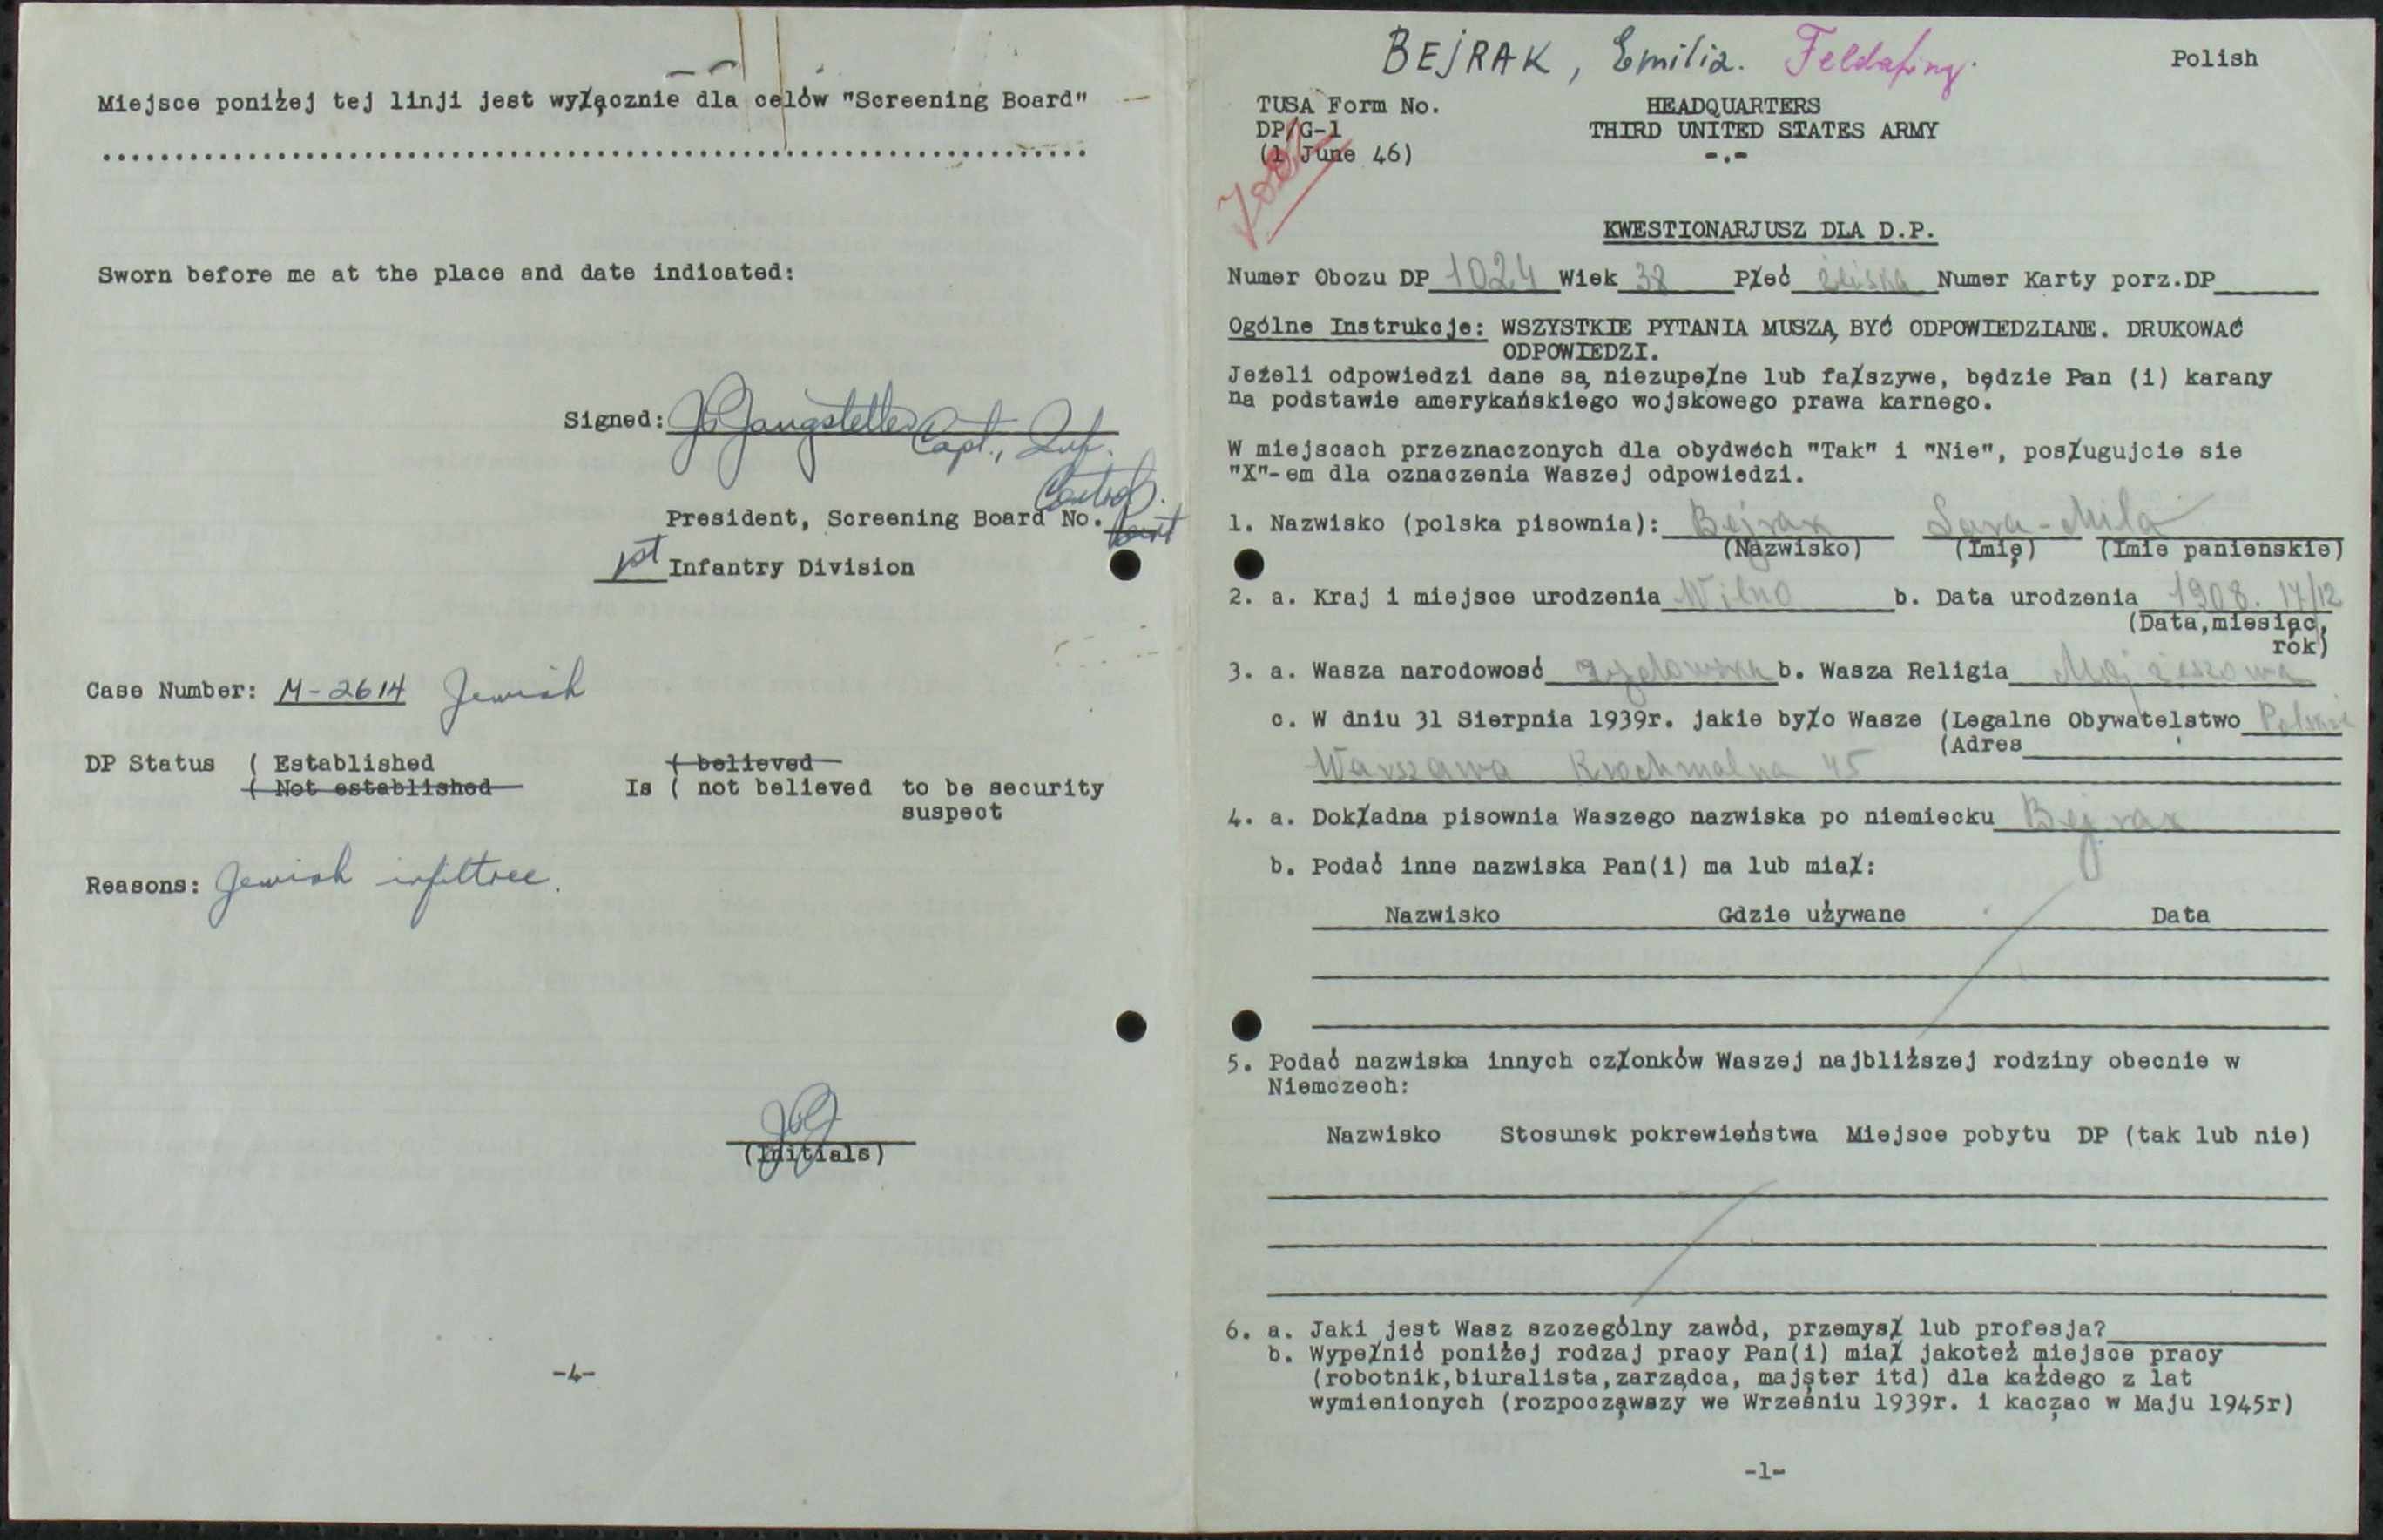 Miejsce poniżej tej linji jest wyłącznie dla celów "Screening Board"
Sworn before me at the place and date indicated:
Signed: Capt., Inf.
Control.
President, Screening Board No.
1st Infantry Division
Case Number: M-2614 Jewish
DP Status ( Established ( believed
( Not established Is ( not believed to be security
suspect
Reasons: Jewish infiltree.
(Initials)
-4-
BEJRAK, Emilia. Feldafing. Polish
TUSA Form No. HEADQUARTERS
DP/G-1 THIRD UNITED STATES ARMY
(1 June 46) -.-
KWESTIONARJUSZ DLA D.P.
Numer Obozu DP 1024 Wiek 38 Płeć Numer Karty porz.DP
Ogólne Instrukcje: WSZYSTKIE PYTANIA MUSZĄ BYĆ ODPOWIEDZIANE. DRUKOWAĆ
ODPOWIEDZI.
Jeżeli odpowiedzi dane są niezupełne lub fałszywe, będzie Pan (i) karany
na podstawie amerykańskiego wojskowego prawa karnego.
W miejscach przeznaczonych dla obydwóch "Tak" i "Nie", posługujcie sie
"X"-em dla oznaczenia Waszej odpowiedzi.
1. Nazwisko (polska pisownia): Bejrak Sara-Mila
(Nazwisko) (Imię) (Imie panienskie)
2. a. Kraj i miejsce urodzenia Wilno b. Data urodzenia 1908. 17/12
(Data,miesiąc,
rok)
3. a. Wasza narodowosć żydowska b. Wasza Religia Mojżeszowa
c. W dniu 31 Sierpnia 1939r. jakie było Wasze (Legalne Obywatelstwo Polskie
(Adres
Warszawa Krochmalna 45
4. a. Dokładna pisownia Waszego nazwiska po niemiecku Bejrak
b. Podać inne nazwiska Pan(i) ma lub miał:
Nazwisko Gdzie używane Data
5. Podać nazwiska innych członków Waszej najbliższej rodziny obecnie w
Niemczech:
Nazwisko Stosunek pokrewieństwa Miejsce pobytu DP (tak lub nie)
6. a. Jaki jest Wasz szczególny zawód, przemysł lub profesja?
b. Wypełnić poniżej rodzaj pracy Pan(i) miał jakoteż miejsce pracy
(robotnik,biuralista,zarządca, majster itd) dla każdego z lat
wymienionych (rozpocząwszy we Wrześniu 1939r. i kacząc w Maju 1945r)
-1-